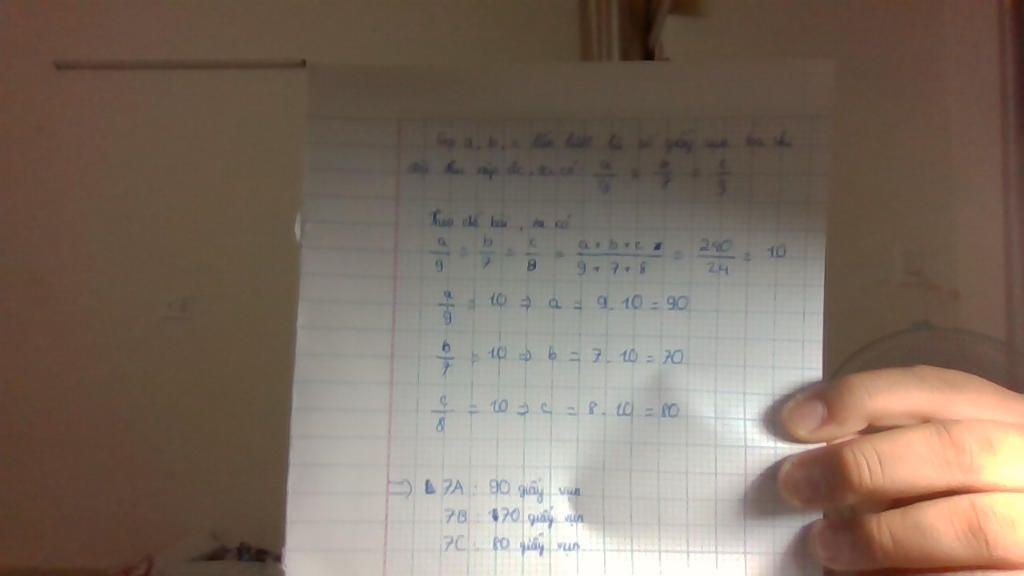 a, b, c lần lượt là số giấy vụn
a/9 = b/7 = c/9
Theo đề bài, ta có
a/9 = b/7 = c/8 = a + b + c / 9 + 7 + 8 = 240/24 = 10
a/9 = 10 ⇒ a = 9 . 10 = 90
b/7 = 10 ⇒ b = 7 . 10 = 70
c/8 = 10 ⇒ c = 8 . 10 = 80
⇒ 7A : 90 giấy vụn
7B : 70 giấy vụn
7C : 80 giấy vụn